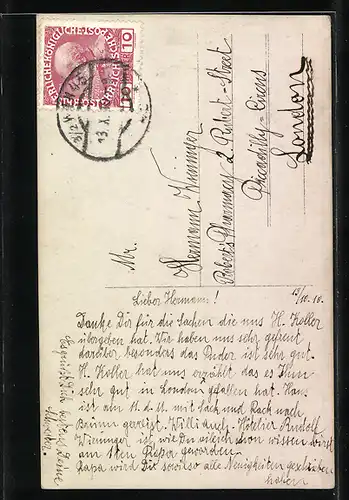 KAISERLICHE KÖNIGLICHE ÖSTERREICHISCHE POST
10
13. X.
Mr.
Hermann Wieninger
Robert's Pharmacy 2 Rupert-Street
Piccadilly-Circus
London
13/10. 10.
Lieber Hermann!
Danke Dir für die Sachen die uns H. Koller
übergeben hat. Wir haben uns sehr gefreut
darüber besonders das Puder ist sehr gut.
H. Koller hat uns erzählt das es Ihm
sehr gut in London gefallen hat. Han.
ist am 11. d. M. mit Sack und Pack nach
Brünn gereist. Hotelier Rudolf
Wieninger ist wie Dir gleich schon wissen wirst
am 1ten Papa geworden.
Papa wird Dir sowieso alle Neuigkeiten geschrieben
haben
Es grüsst Dich